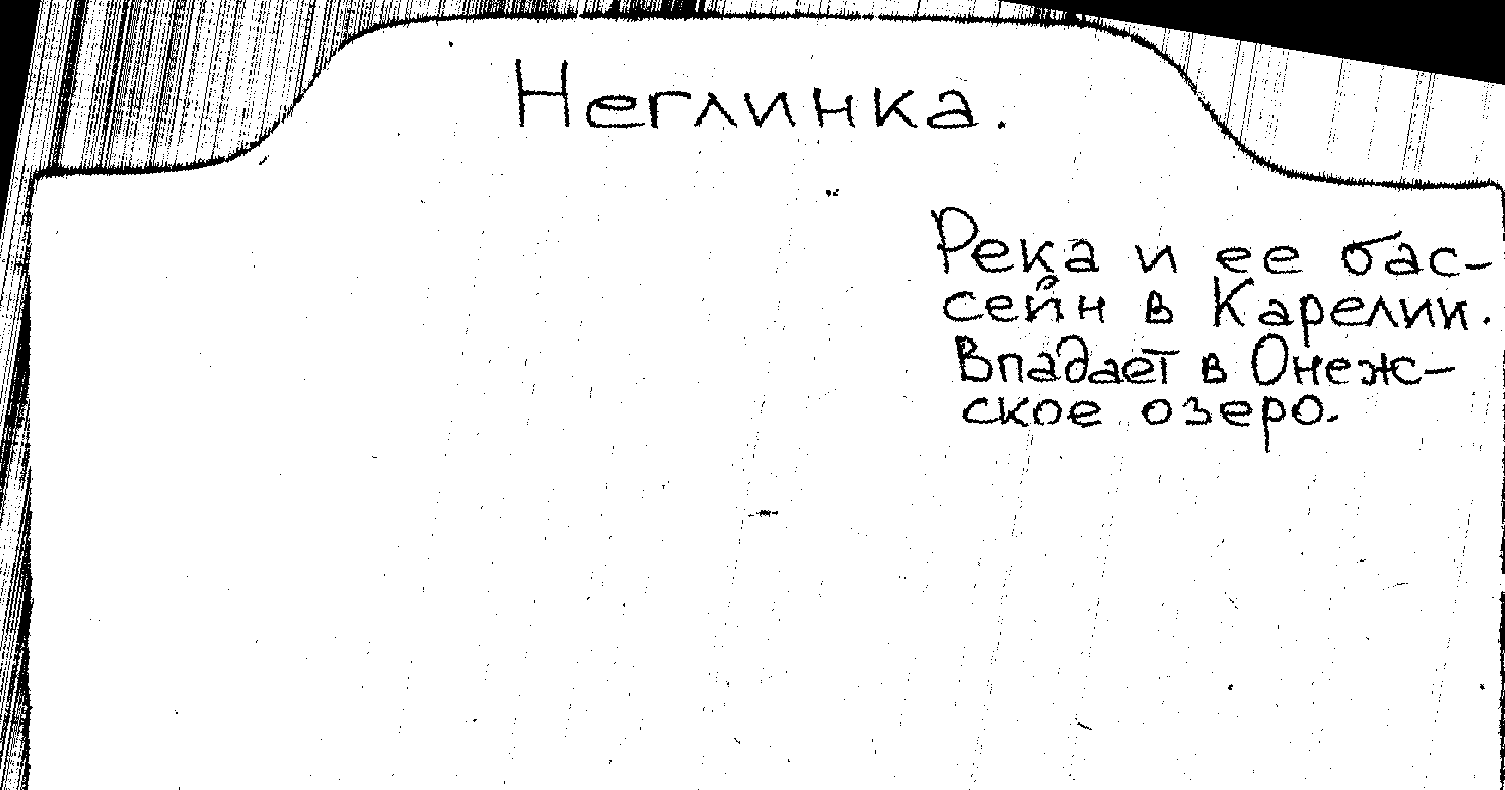 Неглинка.
Река и ее бас-
сейн в Карелии.
Впадает в Онеж-
ское озеро.